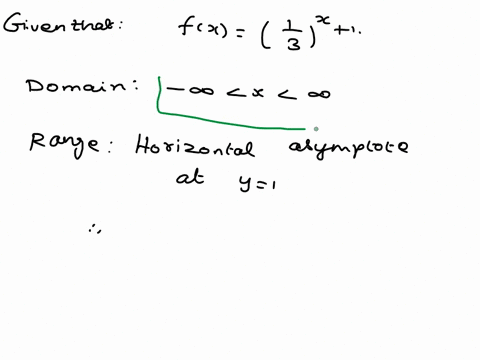 Given that: f(x) = (1/3)^x + 1.
Domain: -∞ < x < ∞
Range: Horizontal asymptote
at y=1
∴